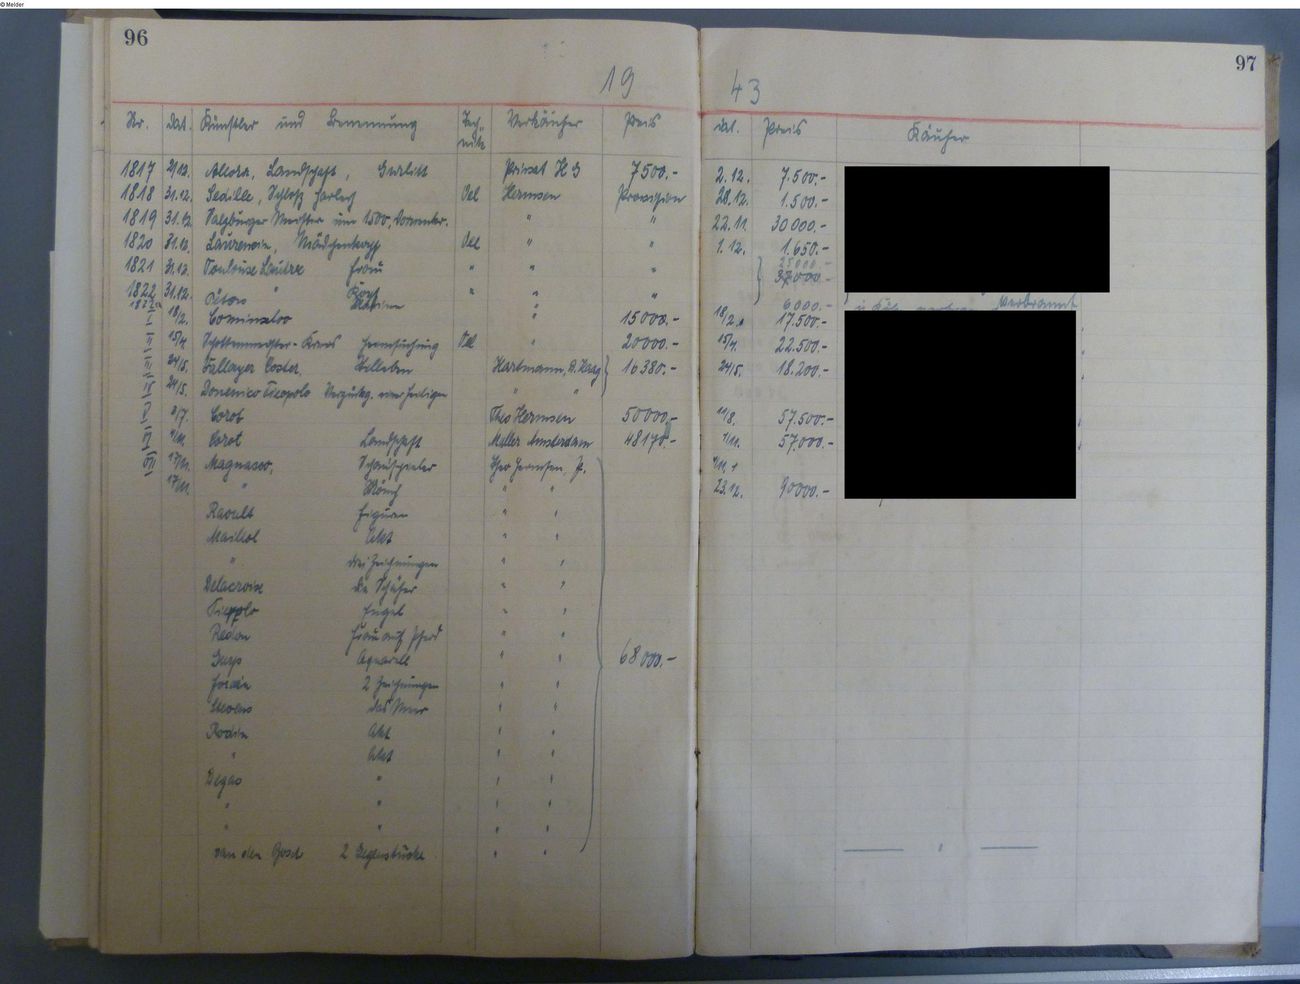 © Melder
96
97
19 43
Nr. dat. Künstler und Benennung Tech-nik Verkäufer Preis dat. Preis Käufer
1817 21.12. Allora, Landschaft, Gurlitt Privat H G 7500.- 2.12. 7.500.-
1818 31.12. Sedille, Schloß Oel Hermsen Provision 28.12. 1.500.-
1819 31.12. Salzburger Meister um 1500, " " 22.11. 30000.-
1820 31.12. Laurencin, Mädchenkopf Oel " " 1.12. 1.650.-
1821 31.12. Toulouse Lautrec Frau " " " 25000.-
1822 31.12. " Kopf " " " 37000.-
6000.- verbrannt
I 18/2. " 15000.- 18/2. 17.500.-
II 15/4. Schottenmeister-Kreis Heimsuchung Oel " 20000.- 15/4. 22.500.-
III 24/5. Vallayer Coster, Stilleben Hartmann, D. Haag 16380.- 24/5. 18.200.-
IV 24/5. Domenico Tiepolo einer Heiligen " "
V 8/7. Corot Theo Hermsen 50000.- 11/8. 57.500.-
VI Corot Landschaft Moller Amsterdam 48170.- 1/11. 57.000.-
VII 17/11. Magnasco, Schauspieler Theo Hermsen, P.
17/11. " Mönch " " 23.12. 90000.-
Raoult Figuren " "
Maillol Akt " "
" drei Zeichnungen " "
Delacroix die Schäfer " "
Tiepolo Engel " "
Redon Frau auf Pferd " "
Guys Aquarell " " 68000.-
2 Zeichnungen " "
das Meer " "
Rodin Akt " "
" Akt " "
Degas " " "
" " " "
" " " "
van den Bosch 2 Gegenstücke " "